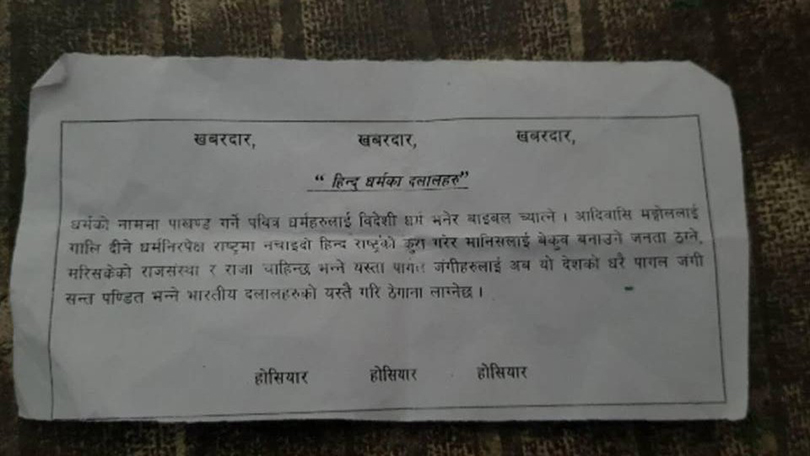 खबरदार, खबरदार, खबरदार,
“ हिन्दु धर्मका दलालहरु”
धर्मको नाममा पाखण्ड गर्ने पवित्र धर्महरुलाई विदेशी धर्म भनेर बाइबल च्यात्ने । आदिवासि मङ्गोललाई
गालि दीने धर्मनिरपेक्ष राष्ट्रमा नचाइदो हिन्द राष्ट्रंको कुरा गरेर मानिसलाई बेकुव बनाउने जनता ठग्ने,
मरिसकेको राजसंस्था र राजा चाहिन्छ भन्ने यस्ता पागल जंगीहरुलाई अब यो देशको धरै पागल जंगी
सन्त पण्डित भन्ने भारतीय दलालहरुको यस्तै गरि ठेगाना लाग्नेछ ।
होसियार होसियार होसियार